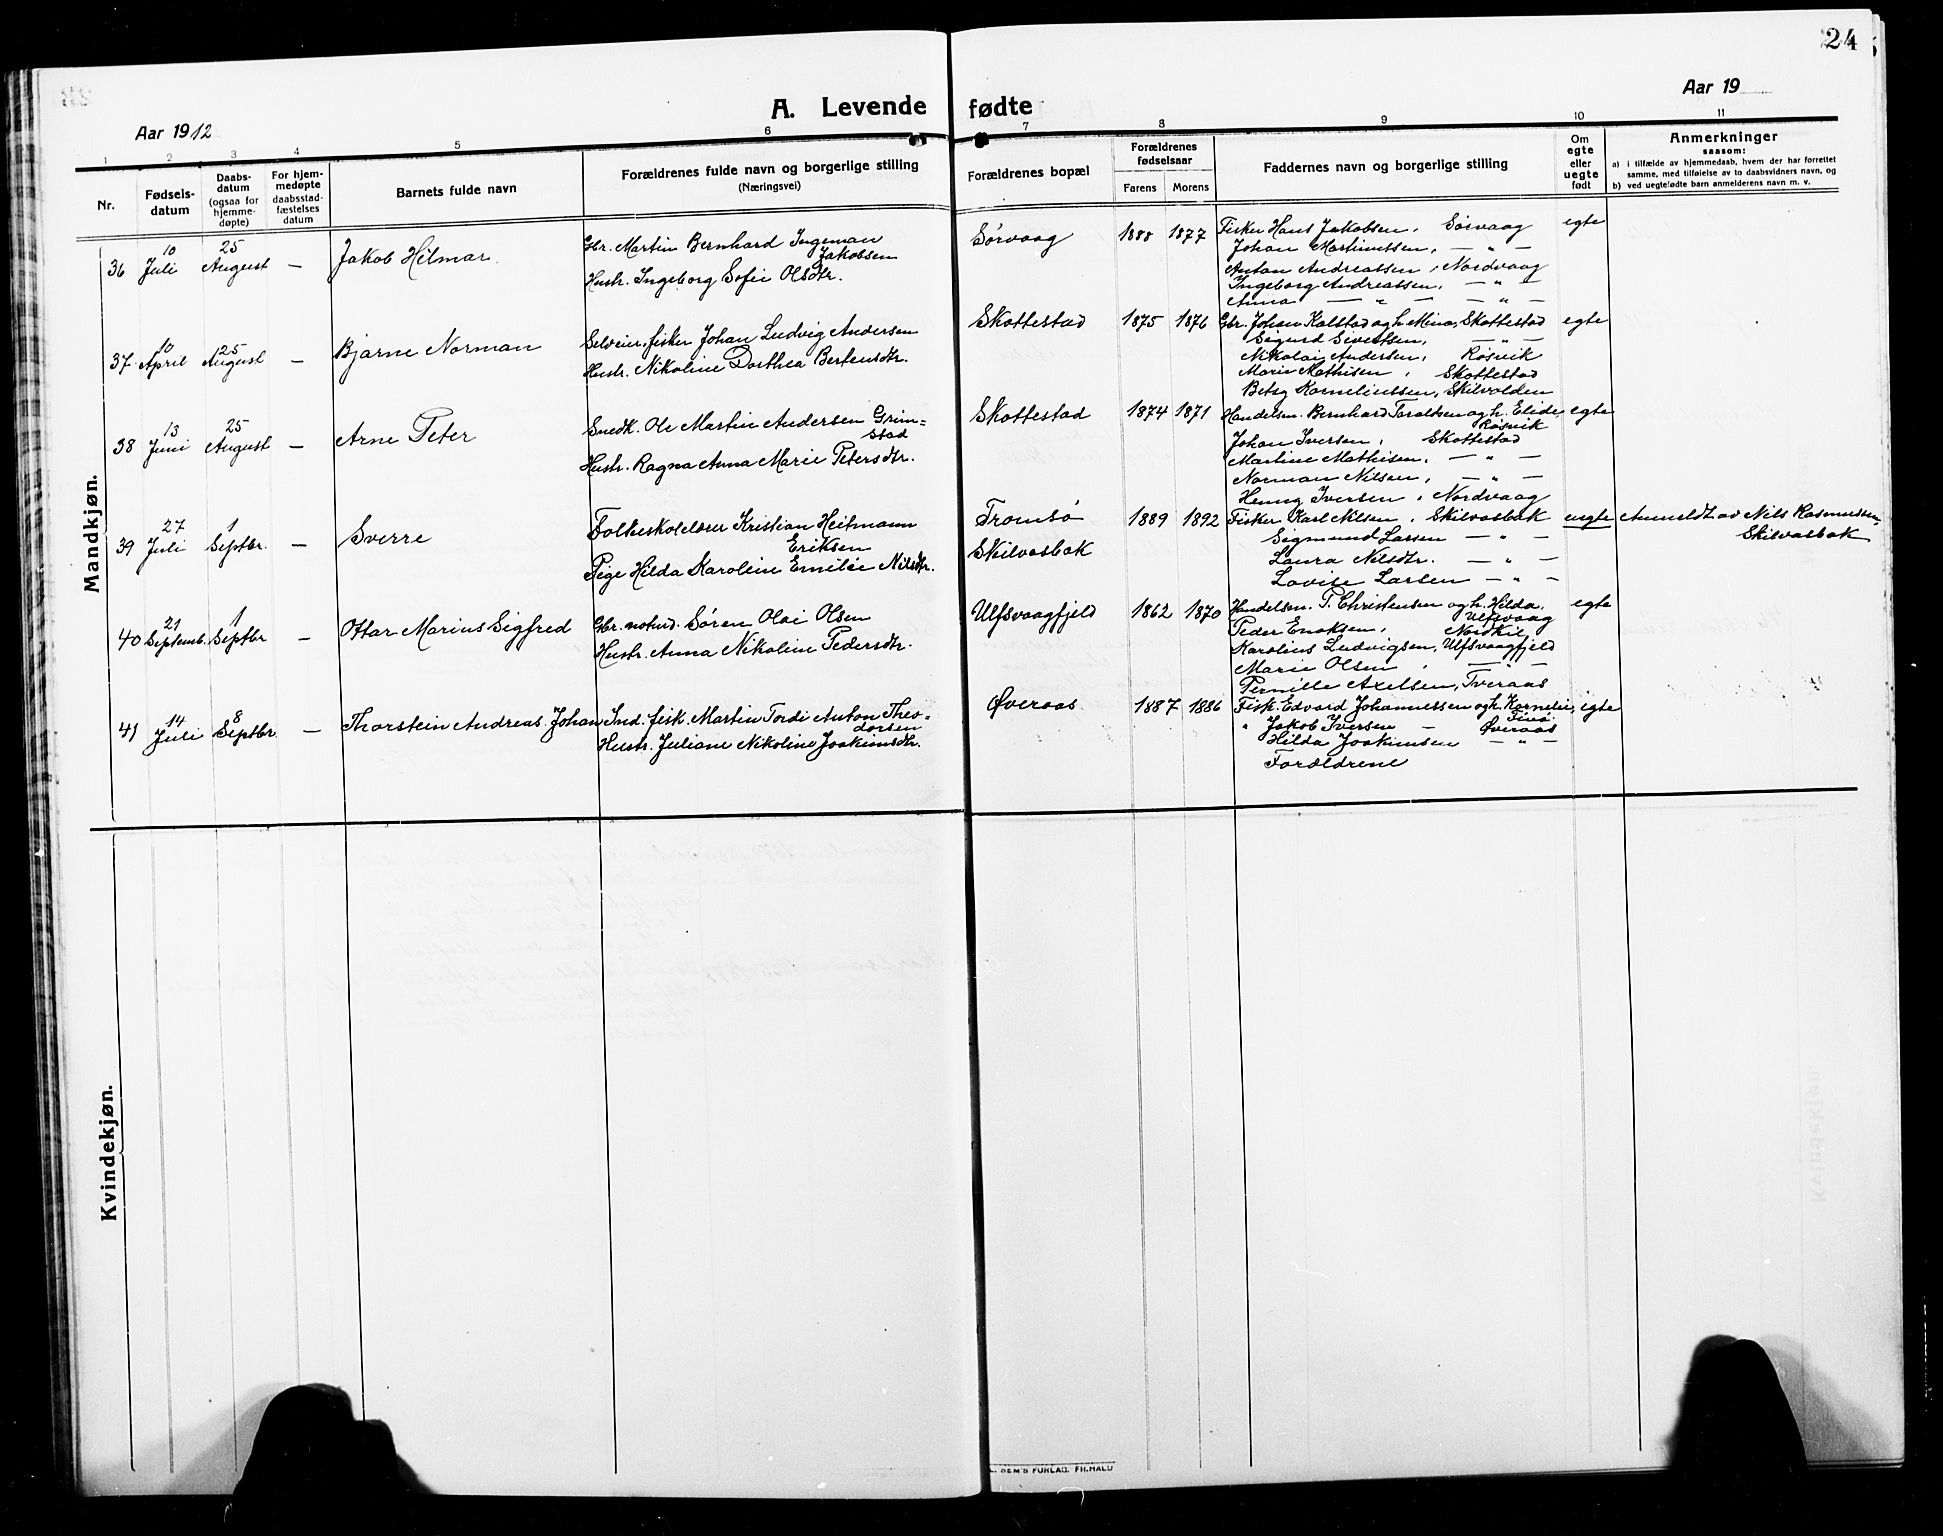 24
A. Levende fødte
Aar 1912
Aar 19
1 2 3 4 5 6 7 8 9 10 11
Nr.
Fødsels-
datum
Daabs-
datum
(ogsaa for
hjemme-
døpte)
For hjem-
medøpte
daabsstad-
fæstelses
datum
Barnets fulde navn
Forældrenes fulde navn og borgerlige stilling
(Næringsvei)
Forældrenes bopæl
Forældrenes
fødselsaar
Farens Morens
Faddernes navn og borgerlige stilling
Om
egte
eller
uegte
født
Anmerkninger
saasom:
a) i tilfælde av hjemmedaab, hvem der har forrettet
samme, med tilføielse av to daabsvidners navn, og
b) ved uegtefødte barn anmelderens navn m. v.
Mandkjøn.
36 10 Juli 25 August — Jakob Hilmar
Gbr. Martin Bernhard Ingeman
Jakobsen
Hustr. Ingeborg Sofie Olsdtr.
Sørvaag 1888 1877
Fisker Hans Jakobsen, Sørvaag
Johan Martinussen, — " —
Anton Andreassen, Nordvaag
Ingeborg Andreassen, — " —
Anna — " — — " —
egte
37 10 April 25 August — Bjarne Norman
Selveier, fisker Johan Ludvig Andersen
Hustr. Nikoline Dorthea Bertensdtr.
Skottestad 1875 1876
Gbr. Johan Kalstad og h. Mina, Skottestad
Sigurd Sivertsen, — " —
Nikolai Andersen, Røsvik
Marie Mathisen, Skottestad
Betsy Korneliussen, Skilvolden
egte
38 13 Juni 25 August — Arne Peter
Snedk. Ole Martin Andersen Grim=
stad
Hustr. Ragna Anna Marie Petersdtr.
Skottestad 1874 1871
Handelsm. Bernhard Taraldsen og h. Elide,
Røsvik
Johan Iversen, Skottestad
Martine Mathisen, — " —
Norman Nilsen, — " —
Henny Iversen, Nordvaag
egte
39 27 Juli 1 Septbr. — Sverre
Folkeskolelærer Kristian Heitmann
Eriksen
Pige Hilda Karoline Emilie Nilsdtr.
Tromsø
Skilvasbak
1889 1892
Fisker Karl Nilsen, Skilvasbak
Sigmund Larsen — " —
Laura Nilsdtr. — " —
Lovise Larsen — " —
uegte
Anmeldt av Nils Rasmussen,
Skilvasbak
40 21 Septemb. 1 Septbr — Ottar Marius Sigfred
Gbr. Søren Olai Olsen
Hustr. Anna Nikoline Pedersdtr.
Ulfsvaagfjeld 1862 1870
Handelsm. P. Christensen og h. Hilda,
Ulfsvaag
Peder Enoksen, Nordkil
Karolius Ludvigsen, Ulfsvaagfjeld
Marie Olsen, — " —
Pernille Axelsen, Tveraas
egte
41 14 Juli 8 Septbr. — Thorstein Andreas Johan
Ind. fisk. Martin Tordi Anton Theo-
dorsen
Hustr. Juliane Nikoline Joakimsdtr.
Øveraas 1887 1886
Fisk. Edvard Johannessen og h. Kornelie,
" Jakob Iversen — Øveraas
Hilda Joakimsen — " —
Forældrene
egte
Kvindekjøn.
SEM'S FORLAG. FR.HALD